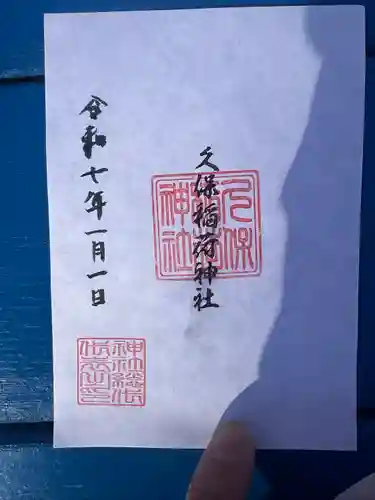 久保稲荷神社
久保
神社
令和七年一月一日